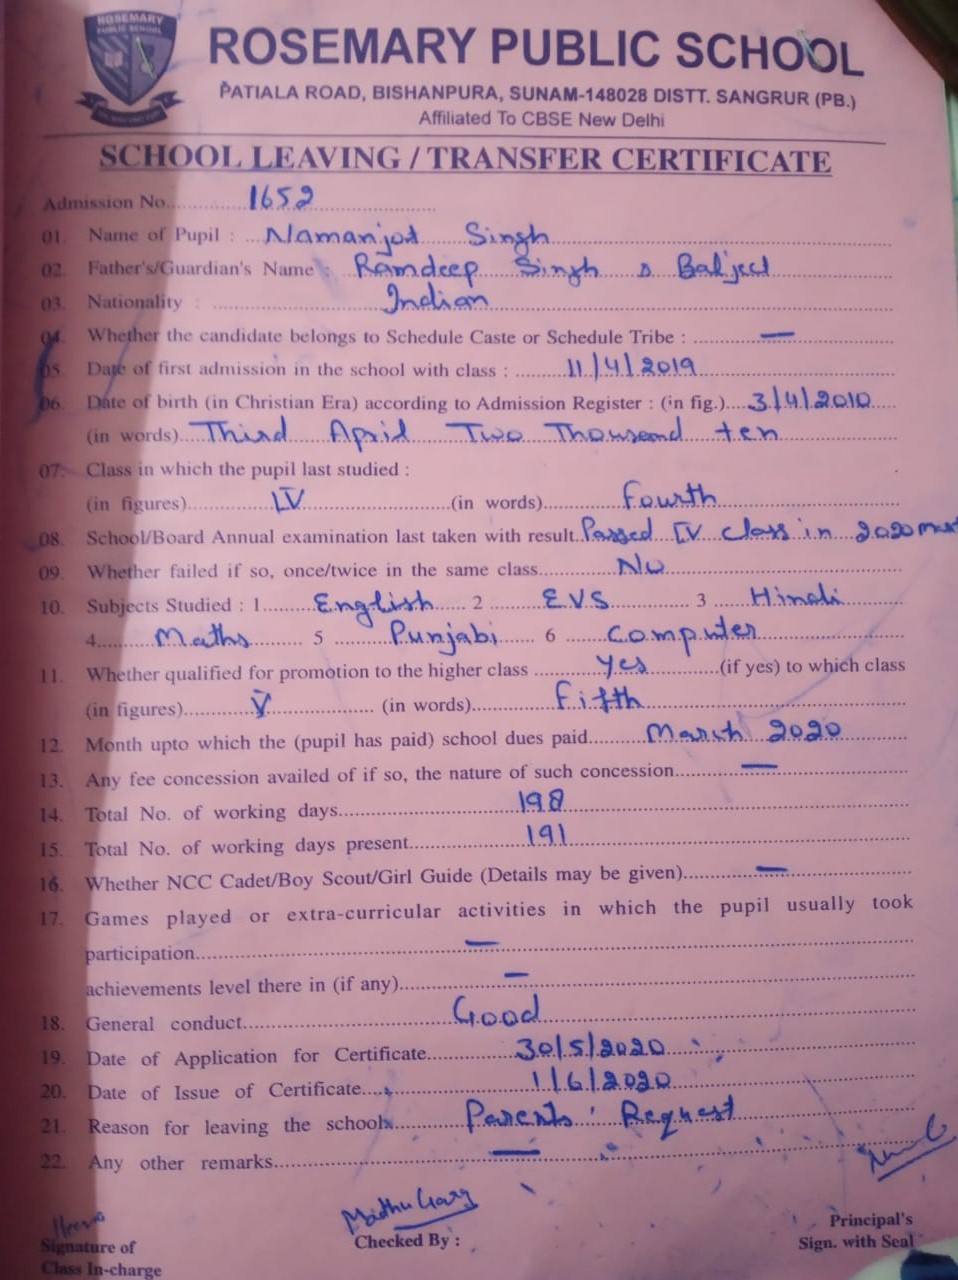 ROSEMARY
PUBLIC SCHOOL
ROSEMARY PUBLIC SCHOOL
PATIALA ROAD, BISHANPURA, SUNAM-148028 DISTT. SANGRUR (PB.)
Affiliated To CBSE New Delhi
SCHOOL LEAVING / TRANSFER CERTIFICATE
Admission No. 1652
01. Name of Pupil : Namanjot Singh
02. Father's/Guardian's Name : Ramdeep Singh & Baljeet
03. Nationality : Indian
04. Whether the candidate belongs to Schedule Caste or Schedule Tribe : —
05. Date of first admission in the school with class : 11/4/2019
06. Date of birth (in Christian Era) according to Admission Register : (in fig.) 3/4/2010
(in words) Third April Two Thousand ten
07. Class in which the pupil last studied :
(in figures) IV (in words) Fourth
08. School/Board Annual examination last taken with result. Passed IV class in 2020
09. Whether failed if so, once/twice in the same class. No
10. Subjects Studied : 1 English 2 EVS 3 Hindi
4. Maths 5 Punjabi 6 Computer
11. Whether qualified for promotion to the higher class yes (if yes) to which class
(in figures) V (in words) Fifth
12. Month upto which the (pupil has paid) school dues paid March 2020
13. Any fee concession availed of if so, the nature of such concession —
14. Total No. of working days 198
15. Total No. of working days present 191
16. Whether NCC Cadet/Boy Scout/Girl Guide (Details may be given) —
17. Games played or extra-curricular activities in which the pupil usually took
participation —
achievements level there in (if any) —
18. General conduct Good
19. Date of Application for Certificate 30/5/2020
20. Date of Issue of Certificate 1/6/2020
21. Reason for leaving the school Parents' Request
22. Any other remarks —
Madhu Garg
Signature of
Class In-charge
Checked By :
Principal's
Sign. with Seal